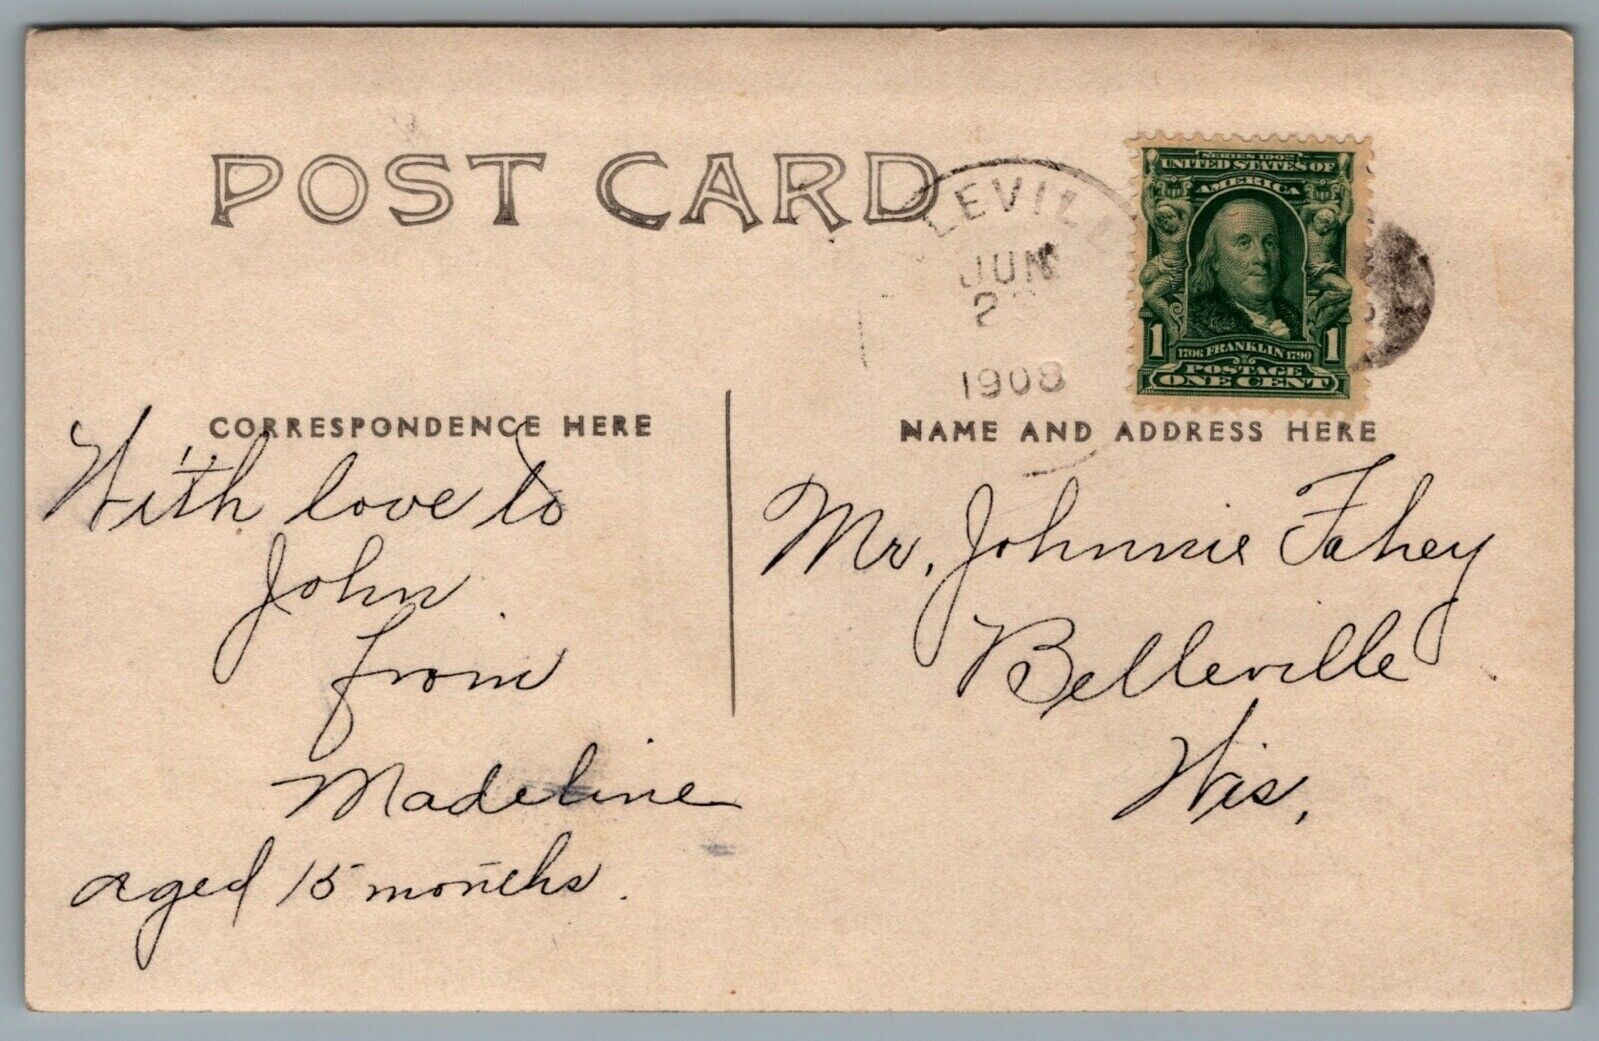 POST CARD
LEVILL
JUN
1908
SERIES 1902
UNITED STATES OF
AMERICA
1 1706 FRANKLIN 1790 1
POSTAGE
ONE CENT
CORRESPONDENCE HERE
With love to
John
from
Madeline
aged 15 months.
NAME AND ADDRESS HERE
Mr. Johnnie Fahey
Belleville
Wis.